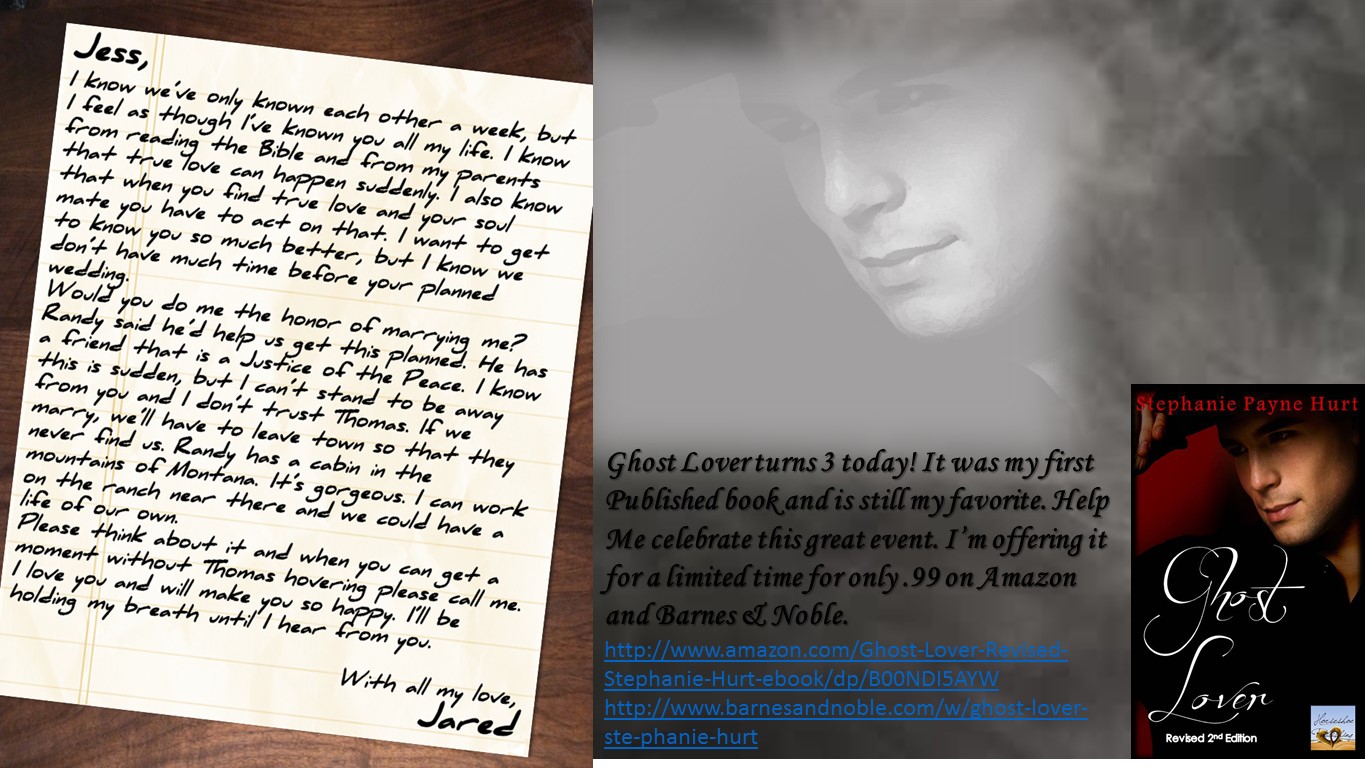 Jess,
I know we've only known each other a week, but
I feel as though I've known you all my life. I know
from reading the Bible and from my parents
that true love can happen suddenly. I also know
that when you find true love and your soul
mate you have to act on that. I want to get
to know you so much better, but I know we
don't have much time before your planned
wedding.
Would you do me the honor of marrying me?
Randy said he'd help us get this planned. He has
a friend that is a Justice of the Peace. I know
this is sudden, but I can't stand to be away
from you and I don't trust Thomas. If we
marry, we'll have to leave town so that they
never find us. Randy has a cabin in the
mountains of Montana. It's gorgeous. I can work
on the ranch near there and we could have a
life of our own.
Please think about it and when you can get a
moment without Thomas hovering please call me.
I love you and will make you so happy. I'll be
holding my breath until I hear from you.
With all my love,
Jared
Ghost Lover turns 3 today! It was my first
Published book and is still my favorite. Help
Me celebrate this great event. I'm offering it
for a limited time for only .99 on Amazon
and Barnes & Noble.
http://www.amazon.com/Ghost-Lover-Revised-
Stephanie-Hurt-ebook/dp/B00NDI5AYW
http://www.barnesandnoble.com/w/ghost-lover-
ste-phanie-hurt
Stephanie Payne Hurt
Ghost
Lover
Revised 2nd Edition
Horseshoe